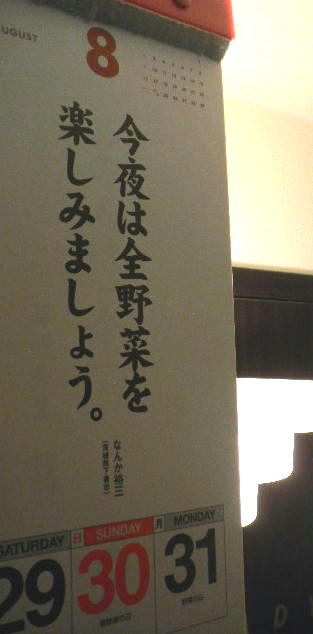 AUGUST
8
今夜は全野菜を
楽しみましょう。
なんか裕三
(茨城県下妻市)
SATURDAY
29
日 SUNDAY
30
月 MONDAY
31
野菜の日